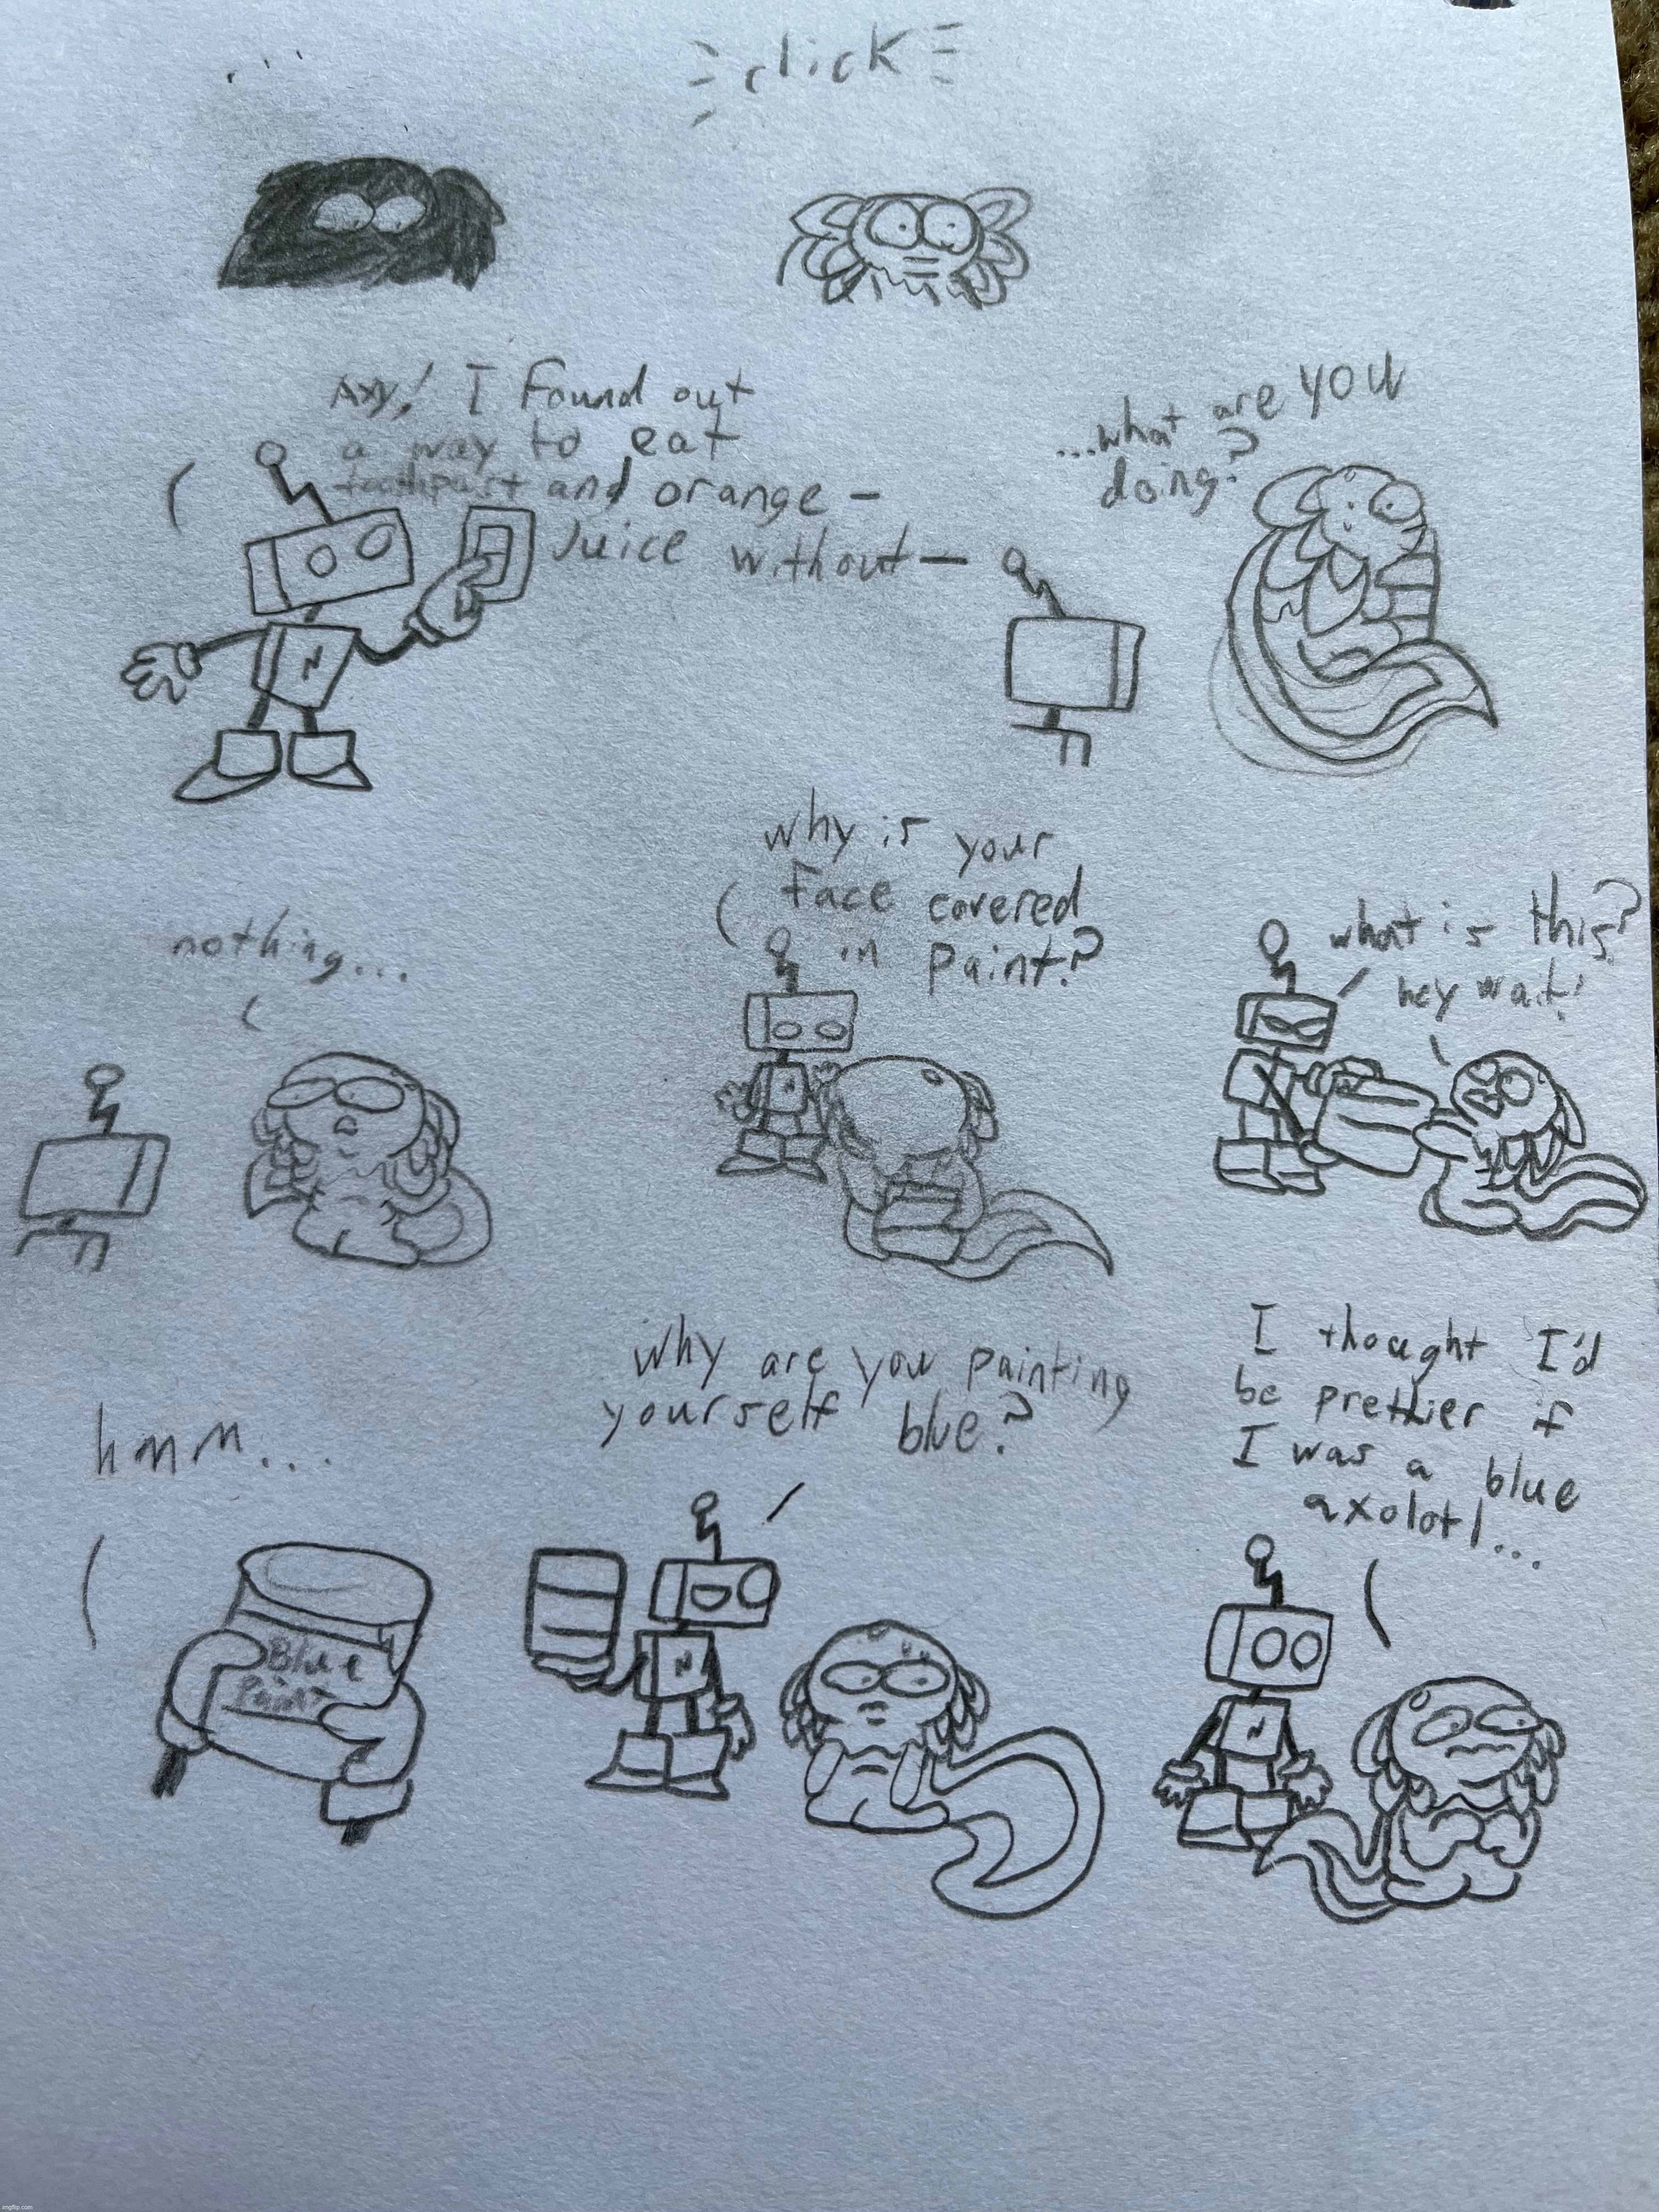 ...
click
Axy! I found out
a way to eat
toothpast and orange -
Juice without -
...what are you
doing?
N
nothing...
why is your
face covered
in paint?
what is this?
hey wait!
hmm...
Blue
Paint
why are you painting
yourself blue?
N
I thought I'd
be prettier if
I was a blue
axolotl...
N
imgflip.com